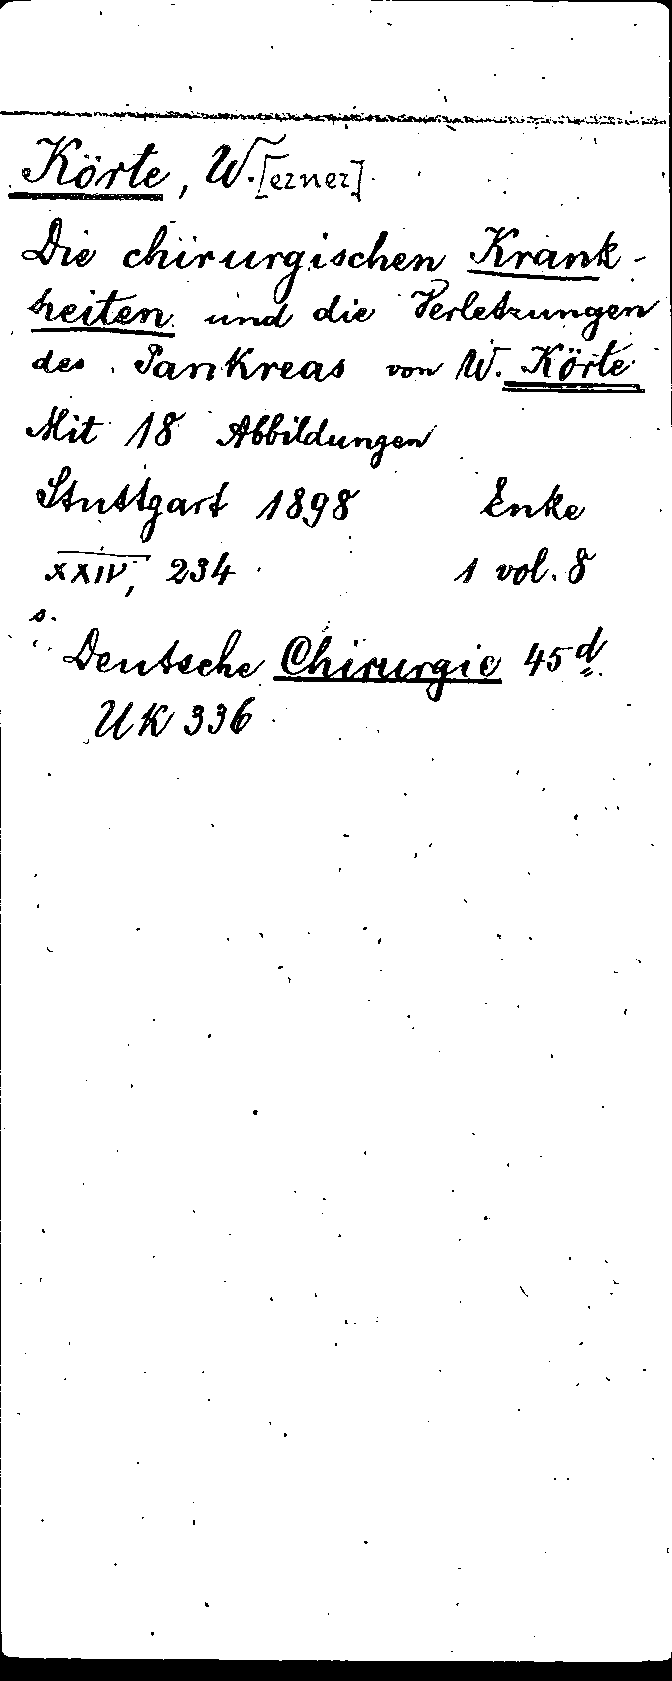 Körte, W.[erner]
Die chirurgischen Krank-
heiten und die Verletzungen
des Pankreas von W. Körte
Mit 18 Abbildungen
Stuttgart 1898 Enke
XXIV, 234 1 vol. 8
s.
Deutsche Chirurgie 45d
UK 336